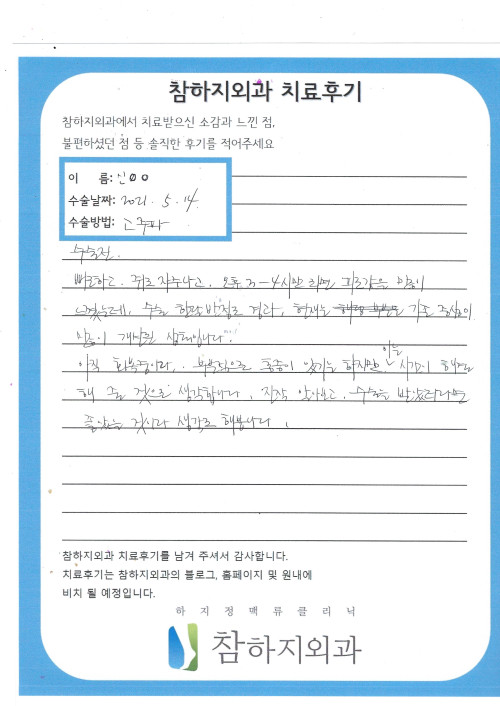 참하지외과 치료후기
참하지외과에서 치료받으신 소감과 느낀 점,
불편하셨던 점 등 솔직한 후기를 적어주세요
이 름: 신00
수술날짜: 2021. 5. 14.
수술방법: 고주파
수술전.
뻐근하고. 쥐도 자주나고, 오후 3-4시만 되면 피로감을 많이
느꼈는데, 수술 한달 반정도 경과, 현재는 기존 증상이
많이 개선된 상태입니다.
아직 회복중이라, 부분적으로 통증이 있기는 하지만 이는 시간이 해결
해 줄 것으로 생각합니다. 진작 알아보고, 수술을 받았더라면
좋았을 것이라 생각도 해봅니다.
참하지외과 치료후기를 남겨 주셔서 감사합니다.
치료후기는 참하지외과의 블로그, 홈페이지 및 원내에
비치 될 예정입니다.
하지정맥류클리닉
참하지외과